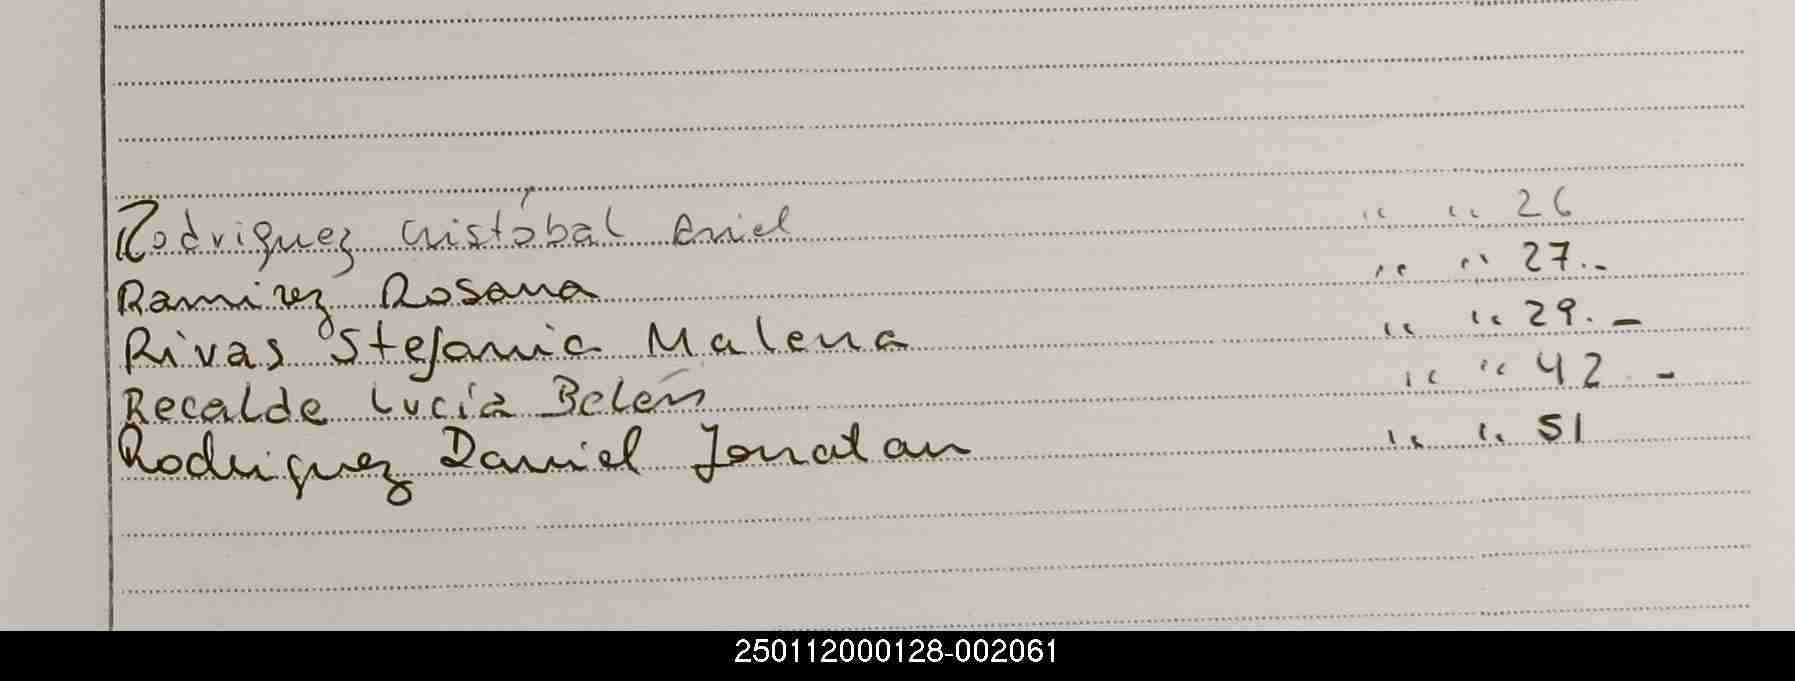 Rodriguez Cristóbal Ariel " " 26
Ramirez Rosana " " 27.-
Rivas Stefania Malena " " 29.-
Recalde Lucía Belén " " 42.-
Rodriguez Daniel Jonatan " " 51
250112000128-002061